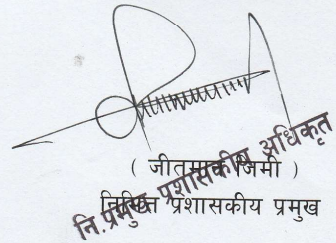 ( जीतमान जिमी )
निमित्त प्रशासकीय प्रमुख
नि.प्रमुख प्रशासकीय अधिकृत